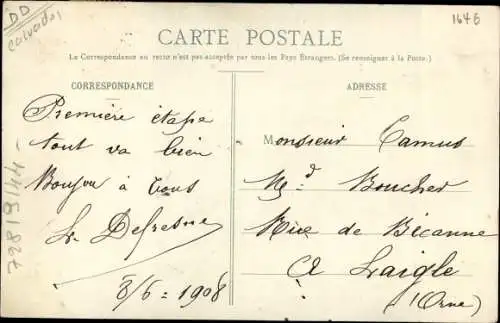 DD
Calvados
1646
CARTE POSTALE
La Correspondance au recto n'est pas acceptée par tous les Pays Étrangers. (Se renseigner à la Poste.)
CORRESPONDANCE
ADRESSE
Première étape
tout va bien
Bonjou à tous
L. Defresne
8/6 = 1908
Monsieur Camus
Md Boucher
Rue de Bécanne
à Laigle
(Orne)
72819/44 -